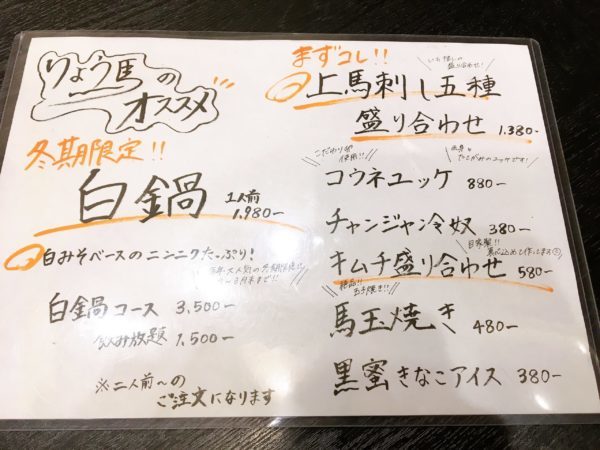 りょう馬の
オススメ
冬期限定!!
白鍋 1人前
1,980-
白みそベースのニンニクたっぷり!
白鍋コース 3,500-
飲み放題 1,500-
※二人前〜の
ご注文になります
まずコレ!!
上馬刺し五種
盛り合わせ 1,380-
こだわり卵
使用!!
コウネユッケ 880-
チャンジャ冷奴 380-
自家製!!
キムチ盛り合わせ 580-
馬玉焼き 480-
黒蜜きなこアイス 380-